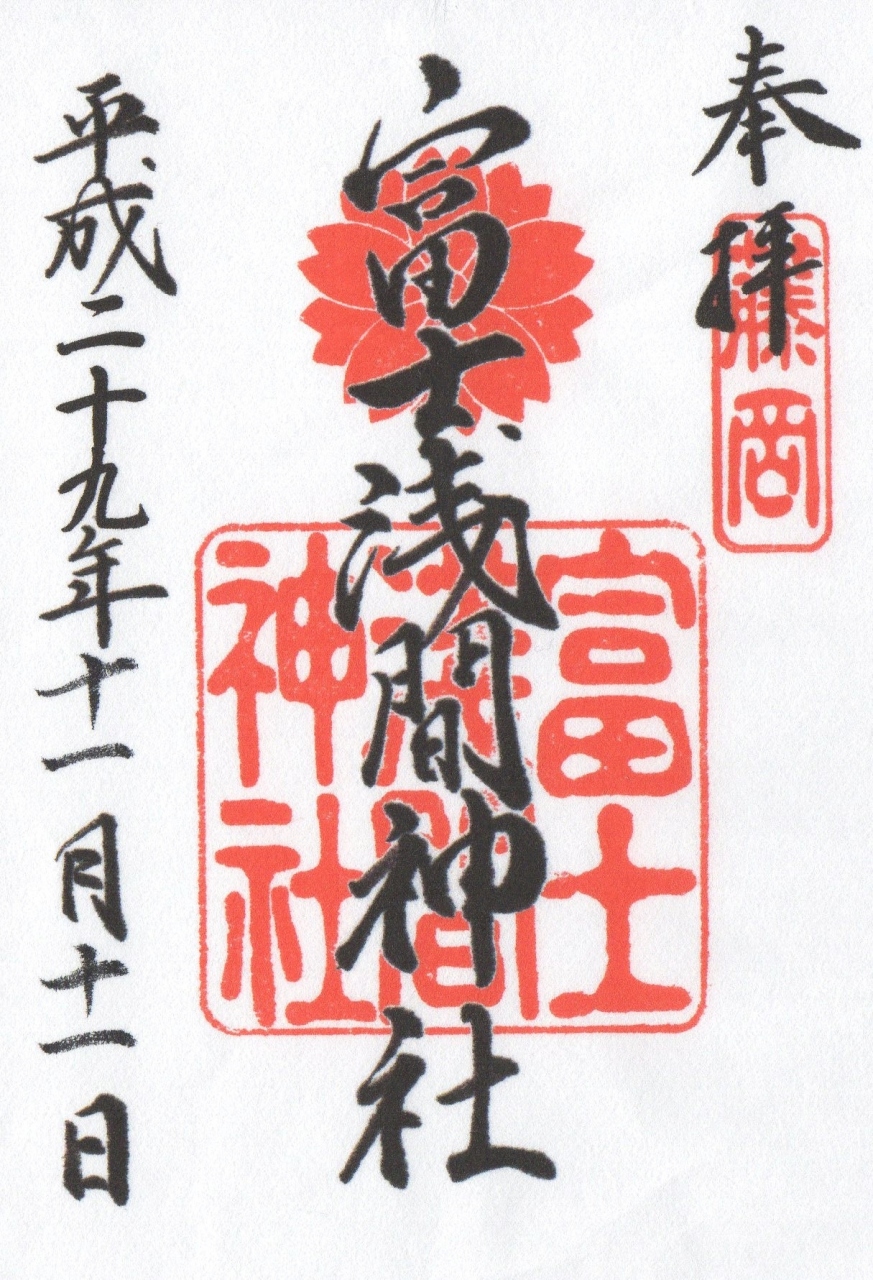 奉拝
藤岡
富士浅間神社
富士
浅間
神社
平成二十九年十一月十一日